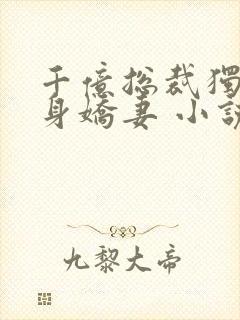 千億总裁獨
身嬌妻 小說
九黎大帝